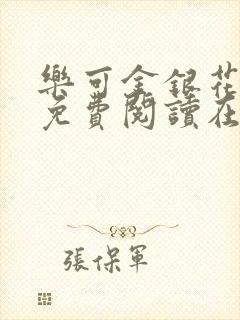 樂可金銀花
免費閱讀在
張保軍